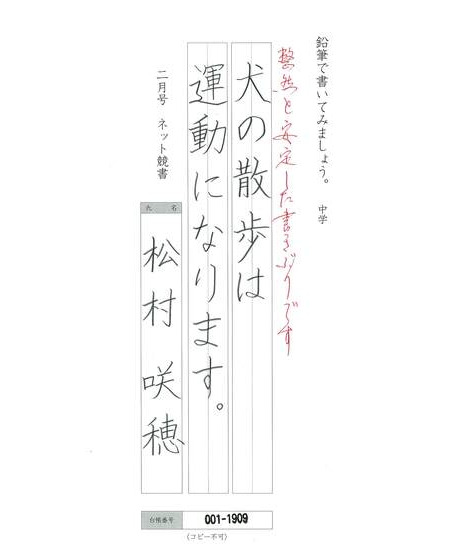 鉛筆で書いてみましょう。 中学
整然と安定した書きぶりです
犬の散歩は
運動になります。
二月号 ネット競書
氏 名
松村 咲穂
台帳番号
001-1909
(コピー不可)